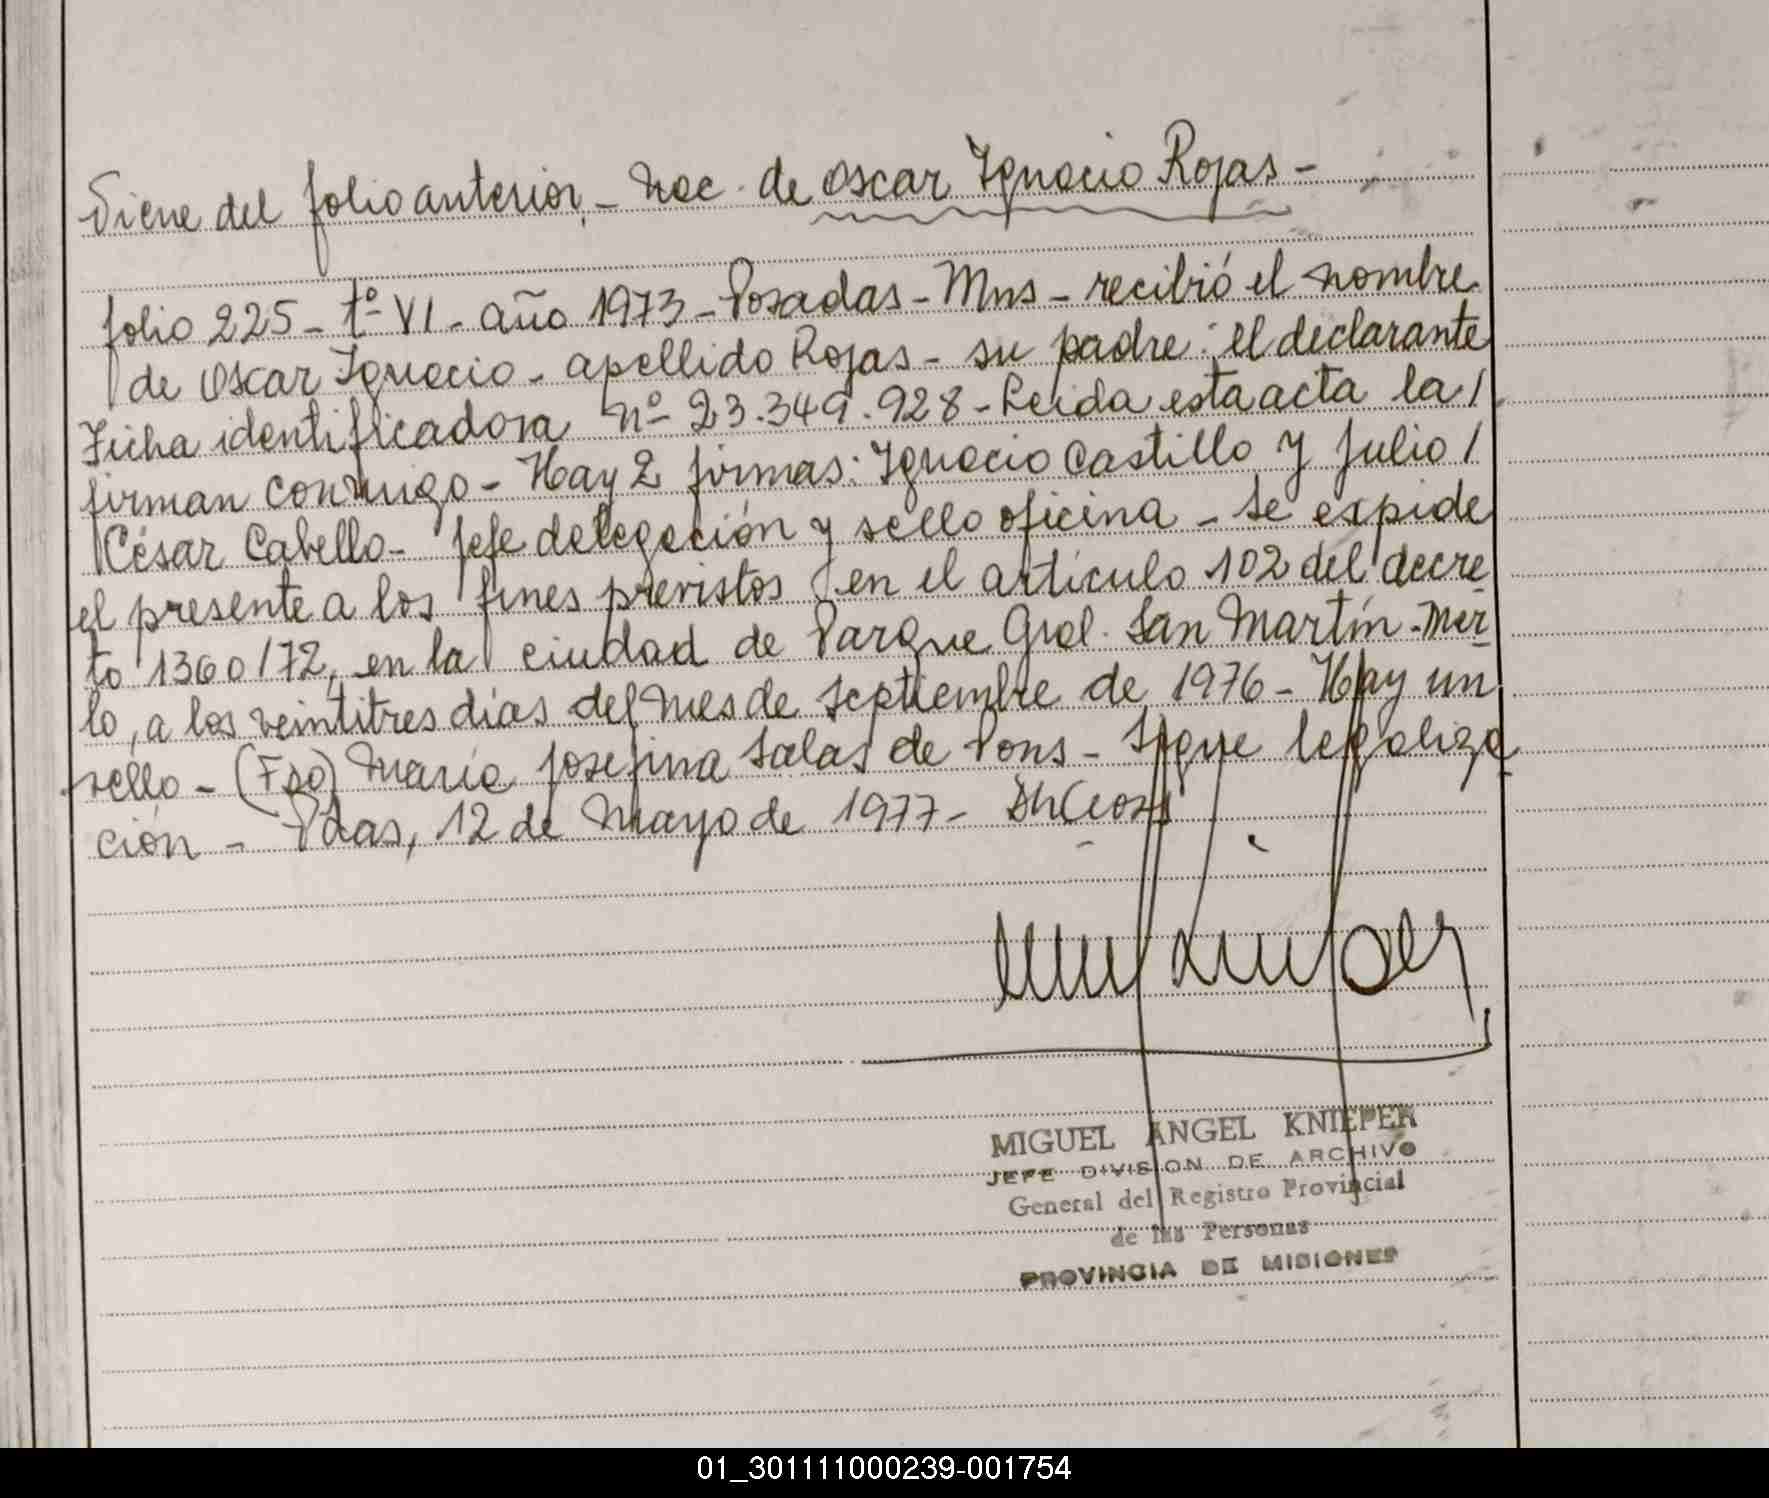 Viene del folio anterior.- Nac. de Oscar Ignacio Rojas -
folio 225 - tº VI - año 1973 - Posadas - Mns - recibió el nombre
de Oscar Ignacio - apellido Rojas - su padre: el declarante
Ficha identificadora nº 23.349.928 - Leida esta acta la /
firman conmigo - Hay 2 firmas: Ignacio Castillo y Julio /
César Cabello - Jefe delegación y sello oficina - Se expide
el presente a los fines previstos en el artículo 102 del decre
to 1360/72, en la ciudad de Parque Gral. San Martín - Mer
lo, a los veintitres días del mes de Septiembre de 1976 - Hay un
sello - (Fdo) María Josefina Salas de Pons - Sigue legaliza
ción - Pdas, 12 de Mayo de 1977 -
MIGUEL ANGEL KNIEPER
JEFE DIVISION DE ARCHIVO
General del Registro Provincial
de las Personas
PROVINCIA DE MISIONES
01_301111000239-001754